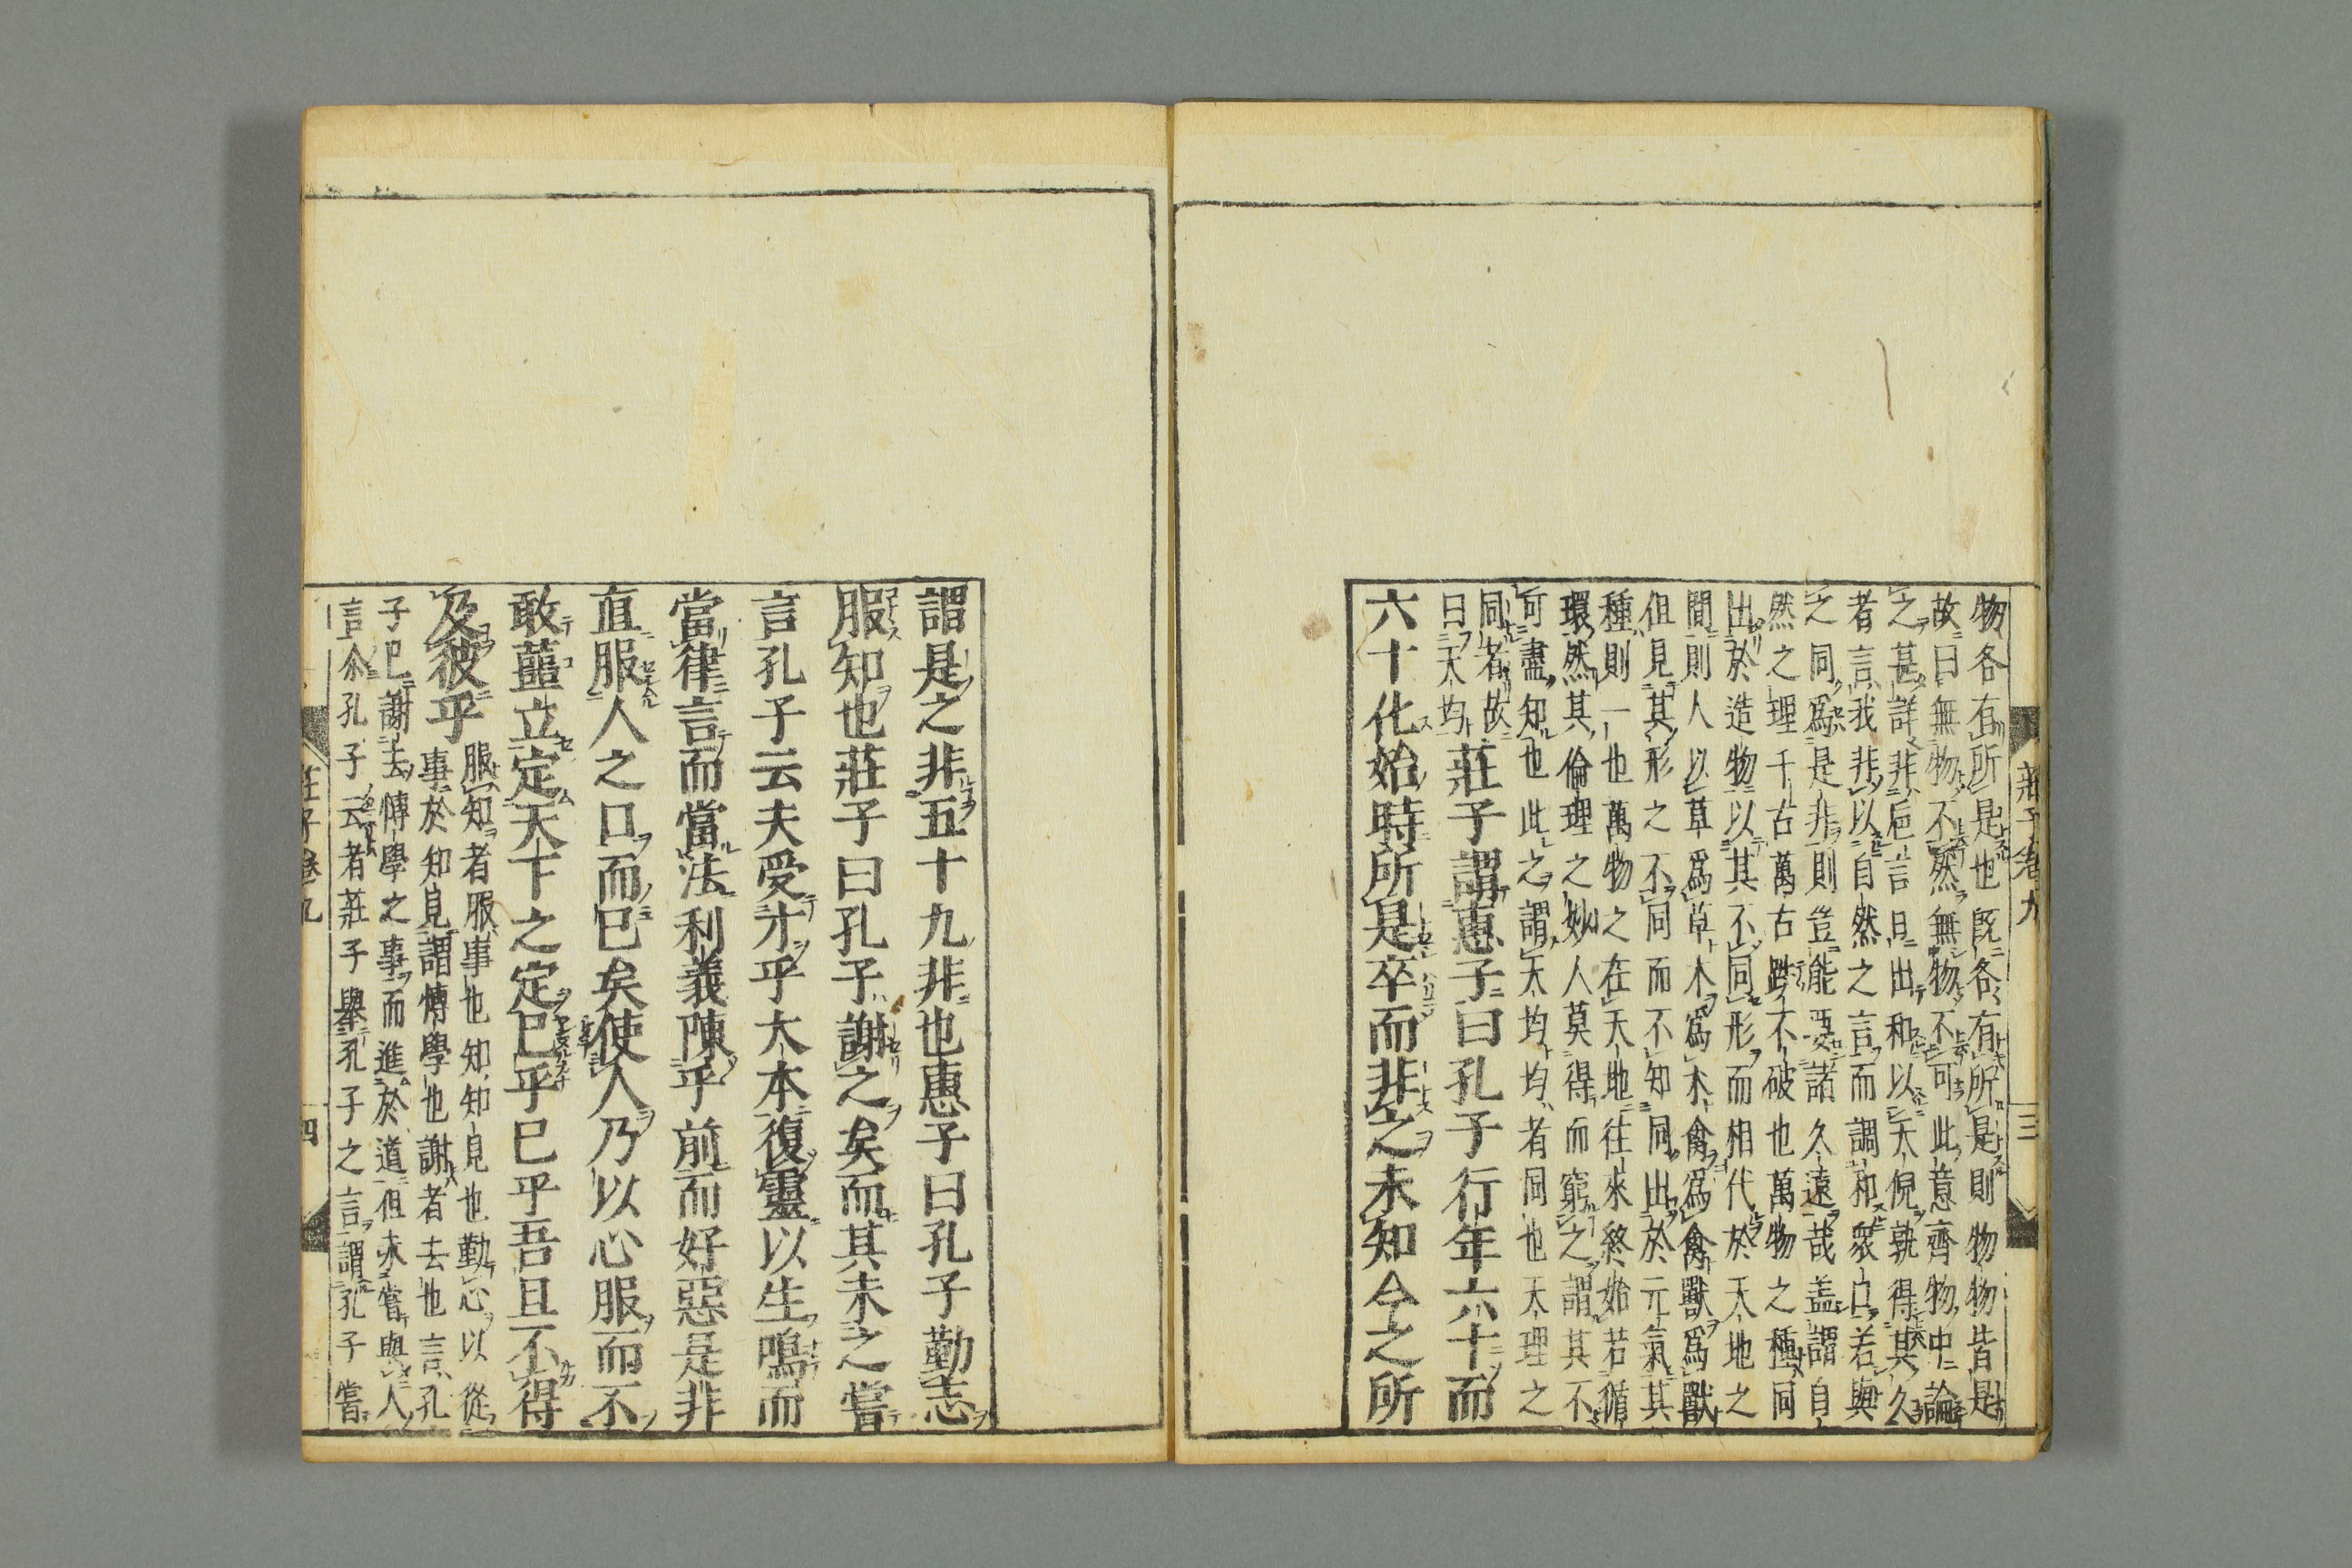 莊子卷九
三
物各有所是也既各有所是則物物皆是
故曰無物不然無物不可此意齊物中論
之甚詳非巵言日出和以天倪孰得其久
者言我非以自然之言而調和衆口若與
之同爲是非則豈能要諸久遠哉盖謂自
然之理千古萬古跌不破也萬物之種同
出於造物以其不同形而相代於天地之
間則人以草爲草木爲木禽爲禽獸爲獸
但見其形之不同而不知同出於元氣其
種則一也萬物之在天地往來終始若循
環然其倫理之妙人莫得而窮之謂其不
可盡知也此之謂天均均者同也天理之
同者故
曰天均莊子謂惠子曰孔子行年六十而
六十化始時所是卒而非之未知今之所
謂是之非五十九非也惠子曰孔子勤志
服知也莊子曰孔子謝之矣而其未之嘗
言孔子云夫受才乎大本復靈以生鳴而
當律言而當法利義陳乎前而好惡是非
直服人之口而已矣使人乃以心服而不
敢蘁立定天下之定已乎已乎吾且不得
及彼乎
服知者服事也知知見也勤心以從
事於知見謂博學也謝者去也言孔
子已謝去博學之事而進於道但未嘗與人
言尒孔子云者莊子舉孔子之言謂孔子嘗
莊子卷九
四